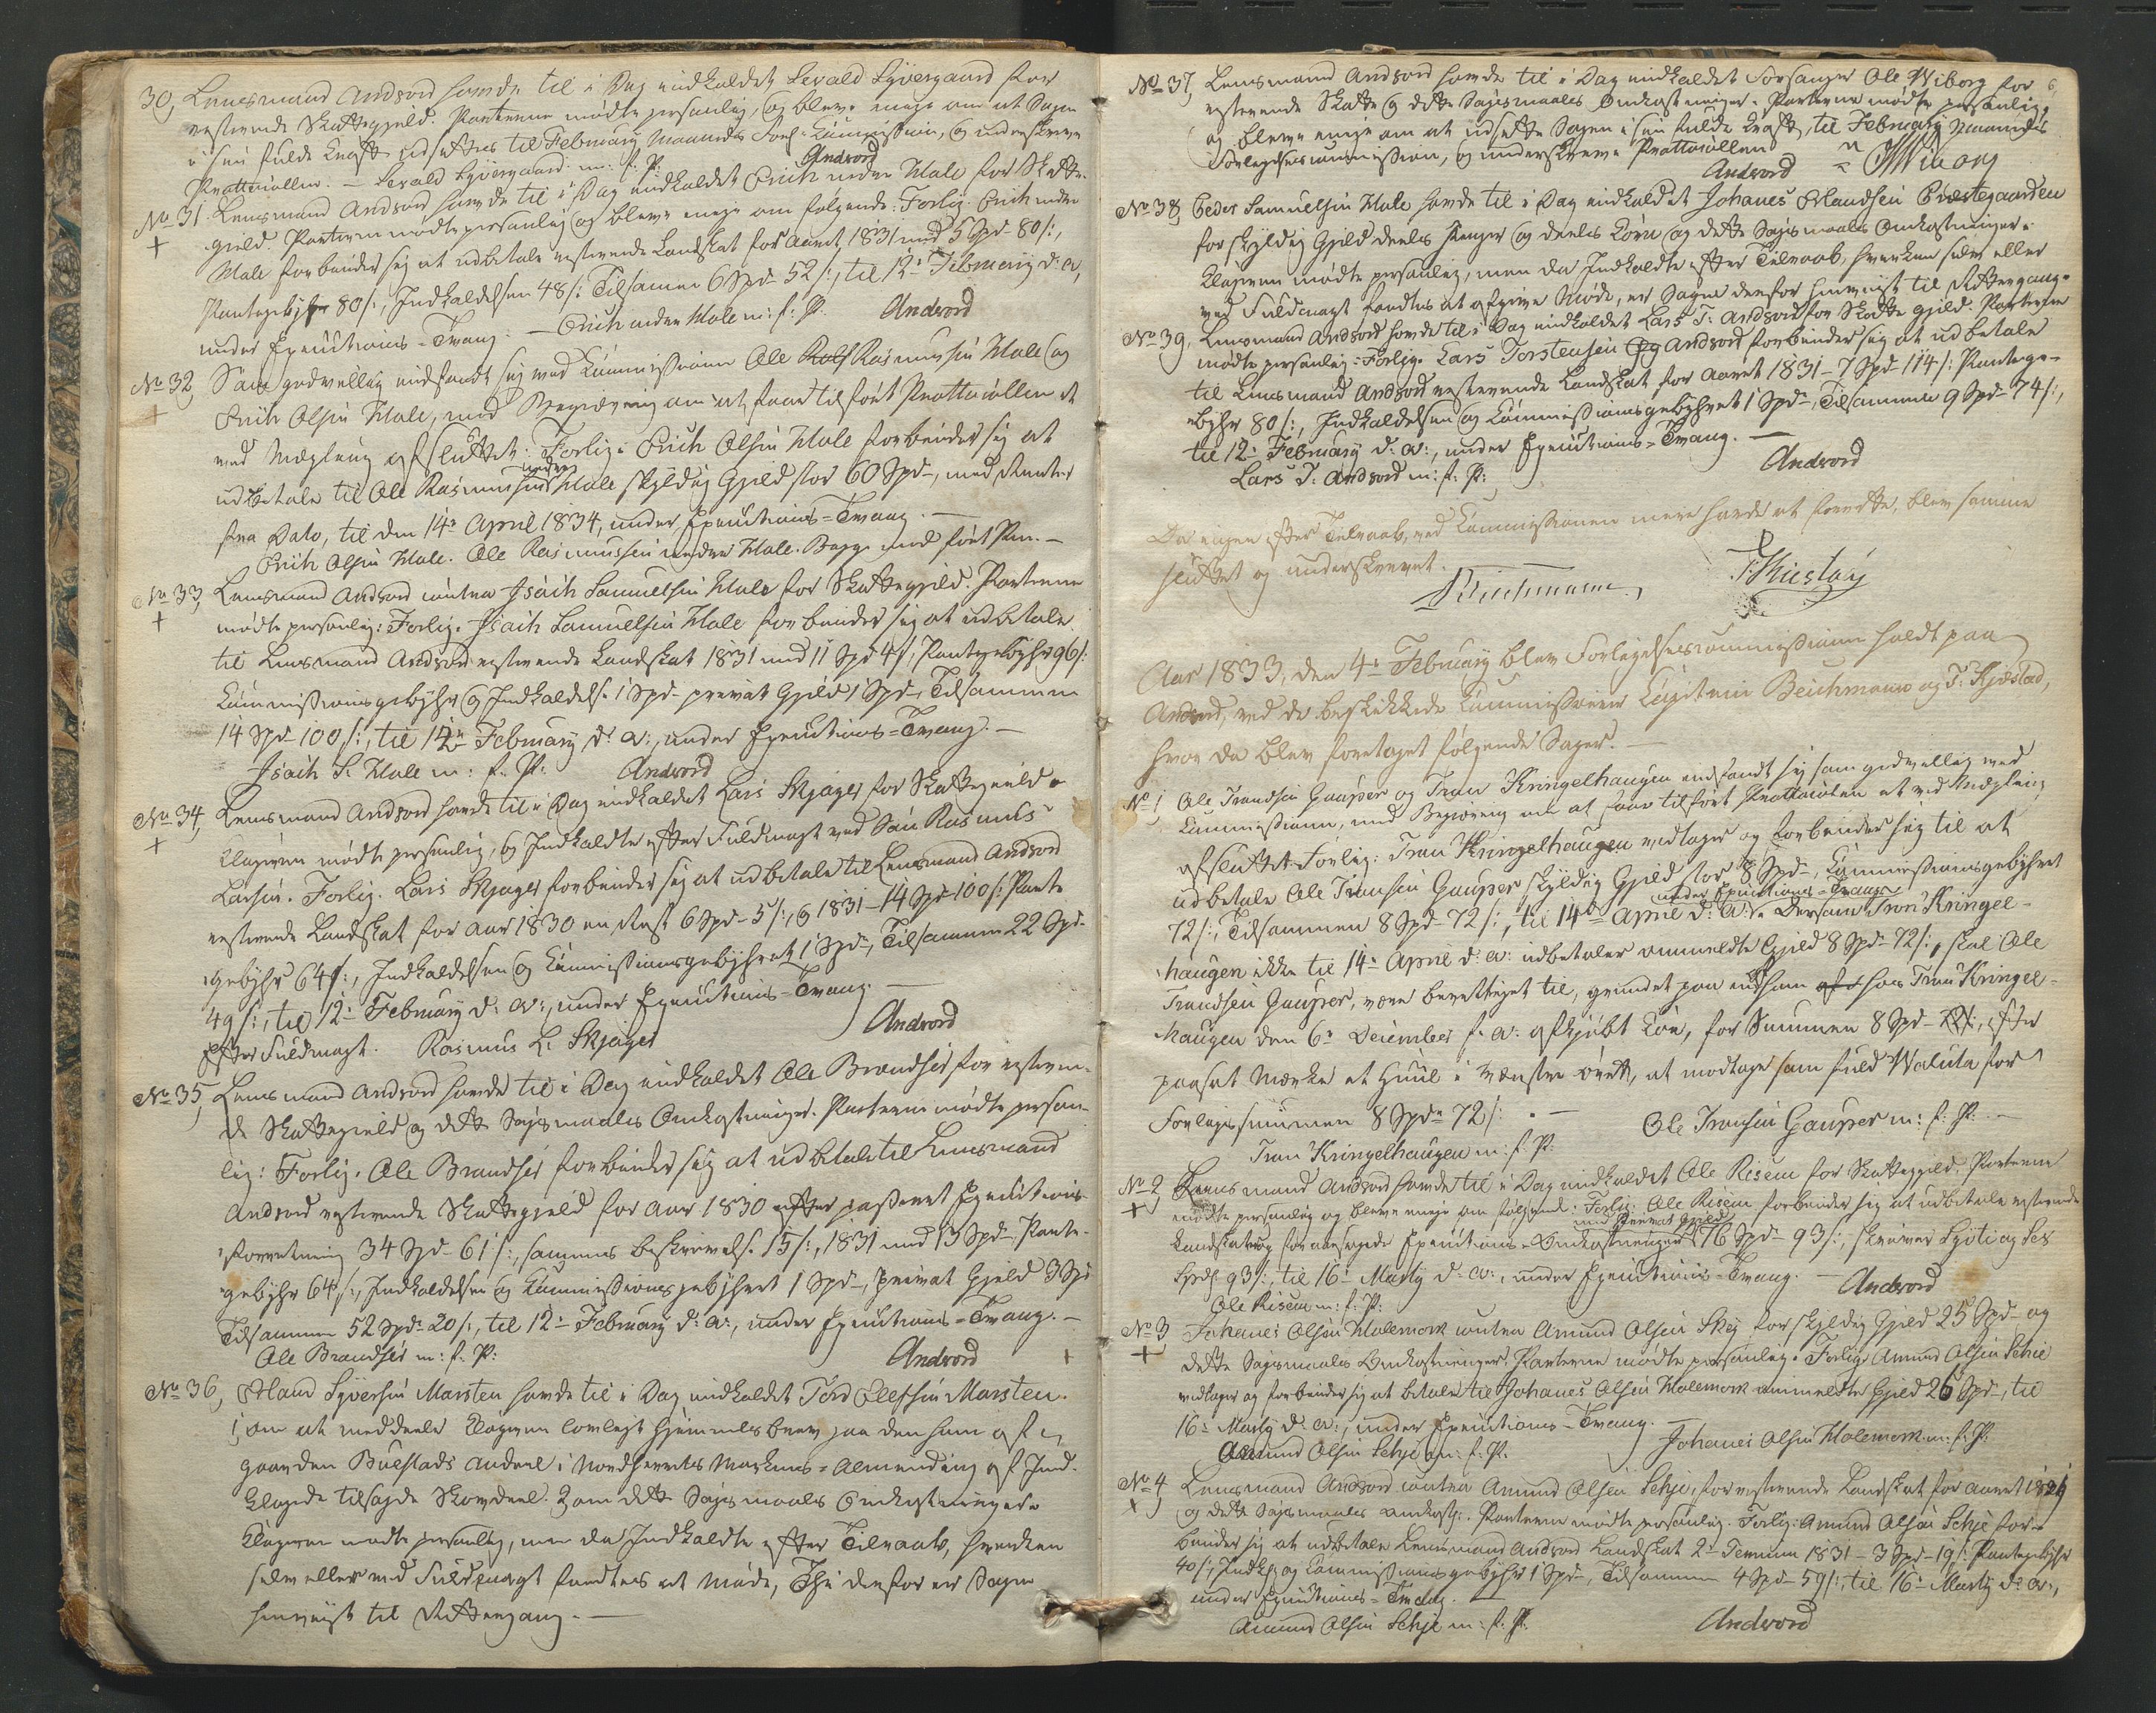 30, Lensmand Andvord havde til i Dag indkaldet Sevald Syversgaard for
resterende Skattegjeld. Parterne mødte personlig, og bleve enige om at Sagen
i sin fulde Kraft udsættes til February Maaneds Forl: Commission, og underskreve
Prottocollen. – Sevald Syversgaard m: f: P: Andvord
No 31. Lensmand Andvord havde til i Dag indkaldet Erich nedre Hole for Skatte-
+
gjeld. Parterne mødte personlig og bleve enige om følgende: Forlig. Erich nedre
Hole forbinder sig at udbetale resterende Landskat for Aaret 1831 med 5 Spd 80 /:,
Pantegebyhr 80 /:, Indkaldelsen 48 /: Tilsamen 6 Spd 52 /:, til 12te February d: A,
under Execution's-Tvang. – Erich neder Hole m: f: P: Andvord
No 32, Som godvillig indfandt sig ved Commissionen Ole Rasmussen Hole og
+
Erich Olsen Hole, med Begiæring om at faae tilført Prottocollen et
ved Mægling afsluttet: Forlig: Erich Olsen Hole forbinder sig at
udbetale til Ole Rasmussen nedre Hole skyldig Gjeld stor 60 Spd, med Renter
fra Dato, til den 14de April 1834, under Execution's-Tvang. –
Erich Olsen Hole. Ole Rasmussen nedre Hole. Begge med ført Pen. –
No 33, Lensmand Andvord contra Isach Samuelsen Hole for Skattegjeld. Parterne
+
mødte personlig: Forlig. Isach Samuelsen Hole forbinder sig at udbetale
til Lensmand Andvord resterende Landskat 1831 med 11 Spd 4 /:, Pantegebyhr 96 /:
Commissionsgebyhr og Indkaldelse 1 Spd privat Gjeld 1 Spd, Tilsammen
14 Spd 100 /:, til 12te February d: A:, under Execution's-Tvang. –
Isach S: Hole m: f: P: Andvord
No 34, Lensmand Andvord havde til i Dag indkaldet Lars Skjager for Skattegjeld.
+
Klageren mødte personlig, og Indkaldte efter Fuldmagt ved Søn Rasmus
Larsen. Forlig. Lars Skjager forbinder sig at udbetale til Lensmand Andvord
resterende Landskat for Aar 1830 en Rest 6 Spd 5 /:, og 1831 – 14 Spd 100 /: Pante
gebyhr 64 /:, Indkaldelsen og Commissionsgebyhret 1 Spd, Tilsammen 22 Spd
49 /:, til 12te February d: A:, under Execution's-Tvang. –
Efter Fuldmagt. Rasmus L: Skjager Andvord
No 35, Lensmand Andvord havde til i Dag indkaldet Ole Brandsei for resteren-
de Skattegjeld og dette Søgsmaals Omkostninger. Parterne mødte person-
lig: Forlig. Ole Brandsei forbinder sig at udbetale til Lensmand
Andvord resterende Skattegjeld for Aar 1830 efter passeret Execution's-
forretning 34 Spd 61 /:, sammes beskrivelse 15 /:, 1831 med 13 Spd, Pante-
gebyhr 64 /:, Indkaldelsen og Commissionsgebyhret 1 Spd, privat Gjeld 3 Spd
Tilsammen 52 Spd 20 /:, til 12te February d: A:, under Execution's-Tvang. –
Ole Brandsei m: f: P: Andvord
No 36, Erland Syversen Marsten havde til i Dag indkaldet Tord Olefsen Marsten.
om at meddeele Klageren lovligt Hjemmelsbrev paa den ham af
gaarden Bustads Andeel i Nordherrets Markens-Almending af Ind-
klagede tilsagde Skovdeel. Zom dette Søgsmaals Omkostninger.
Klageren mødte personlig, men da Indkaldte efter Tilraab, hverken
selv eller ved Fuldmagt fandtes at møde, Thi derfor er Sagen
henviist til Rettergang. –
6,
No 37, Lensmand Andvord havde til i Dag indkaldet Forsanger Ole Wiborg for
resterende Skatte og dette Søgsmaales Omkostninger. Parterne mødte personlig,
og bleve enige om at udsætte Sagen i sin fulde Kraft, til February Maaneds
Forligelsescommission, og underskreve Prottocollen
Andvord OWiborg
No 38, Peder Samuelsen Hole havde til i Dag indkaldet Johanes Erlandsen Præstegaarden
for skyldig Gjeld deels Penger og deels Korn og dette Søgsmaals Omkostninger.
Klageren mødte personlig, men da Indkaldte efter Tilraab, hverken selv eller
ved Fuldmagt fandtes at afgive Møde, er Sagen derfor henviist til Rettergang.
No 39, Lensmand Andvord havde til i Dag indkaldet Lars T: Andvord for Skatte gjeld. Parterne
mødte personlig: Forlig. Lars Torstensen Andvord forbinder sig at udbetale
til Lensmand Andvord resterende Landskat for Aaret 1831 – 7 Spd 114 /: Pantege-
byhr 80 /:, Indkaldelsen og Commissionsgebyhret 1 Spd, Tilsammen 9 Spd 74 /:,
til 12te February d: A:, under Execution's-Tvang. –
Lars T: Andvord m: f: P: Andvord
Da ingen efter Tilraab, ved Commissionen mere havde at foredrette, blev samme
sluttet og underskrevet.
Beichmann, T. Kiestad
Aar 1833, den 4de February blev Forligelsescommissionen holdt paa
Andvord, ved de beskikkede Commissairer Capitain Beichmann og T: Kjæstad,
hvor da blev foretaget følgende Sager. –
No 1, Ole Trondsen Gaupar og Tron Kringelhaugen indfandt sig som godvillig ved
Commissionen, med Begiæring om at faae tilført Prottocolen et ved Mægling
afsluttet Forlig: Tron Kringelhaugen vedtager og forbinder sig til at
udbetale Ole Tronsen Gauper skyldig Gjeld stor 8 Spd, Commissionsgebyhret
72 /:, Tilsammen 8 Spd 72 /:, til 14de April d: A: under Execution's-Tvang. Dersom Tron Kringel-
haugen ikke til 14de April d: A: udbetaler ommeldte Gjeld 8 Spd 72 /:, skal Ole
Trondsen Gauper, være berettiget til, grundet paa en ham hos Tron Kringel-
haugen den 6te December f: A: afkjøbt Koe, for Summen 8 Spd 72 /:, efter
paasat Mærke et Huul i venstre øret, at modtage som fuld Valuta for
Forligssummen 8 Spd 72 /: . –
Tron Kringelhaugen m: f: P: Ole Tronsen Gauper m: f: P: –
No 2 Lensmand Andvord havde til i Dag indkaldet Ole Risem for Skattegjeld. Parterne
+
mødte personlig og bleve enige om følgende: Forlig: Ole Risem forbinder sig at udbetale resterende
Landskat og foraarsagede Execution's-Omkostninger med privat Gjeld 76 Spd 93 /:, skriver Sytti og Sex
Spd 93 /:, til 16de Marty d: A:, under Execution's-Tvang. – Andvord
Ole Risem m: f: P:
No 3 Johanes Olsen Holemork contra Amund Olsen Skej for skyldig Gjeld 25 Spd og
+
dette Søgsmaales Omkostninger. Parterne mødte personlig. Forlig. Amund Olsen Schie
vedtager og forbinder sig at betale til Johanes Olsen Holemork ommeldte Gjeld 26 Spd, til
16de Marty d: A:, under Execution's-Tvang. –
Amund Olsen Schje m: f: P: Johanes Olsen Holemork m: f: P:
No 4 Lensmand Andvord contra Amund Olsen Schje, for resterende Landskat for Aaret 1831
+
og dette Søgsmaales Omkostn:. Parterne mødte personlig. Forlig: Amund Olsen Schje for-
binder sig at udbetale Lensmand Andvord Landskat 2de Termin 1831 – 3 Spd – 19 /: Pantegebyhr
40 /:, Indk: og Commissionsgebyhr 1 Spd, Tilsammen 4 Spd 59 /:, til 16de Marty d: A:,
under Execution's-Tvang. –
Amund Olsen Schje m: f: P: Andvord